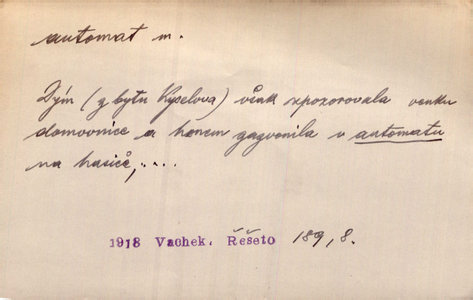 automat m.
Dým (z bytu Kyselova) však zpozorovala venku
domovnice a honem zazvonila v automatu
na hasiče,....
1918 Vachek. Řešeto 189,8.